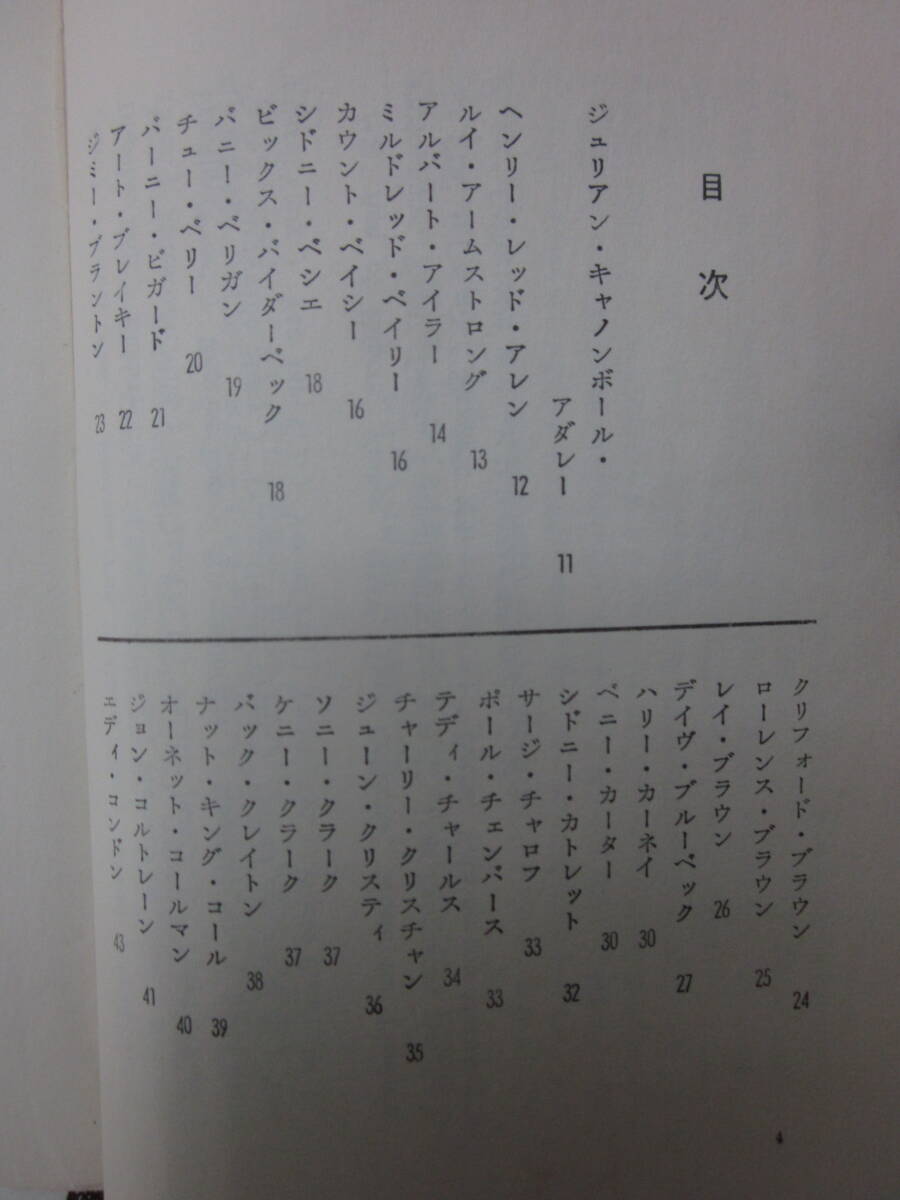 目次
ジュリアン・キャノンボール・
アダレー 11
ヘンリー・レッド・アレン 12
ルイ・アームストロング 13
アルバート・アイラー 14
ミルドレッド・ベイリー 16
カウント・ベイシー 16
シドニー・ベシェ 18
ビックス・バイダーベック 18
バニー・ベリガン 19
チュー・ベリー 20
バーニー・ビガード 21
アート・ブレイキー 22
ジミー・ブラントン 23
クリフォード・ブラウン 24
ローレンス・ブラウン 25
レイ・ブラウン 26
デイヴ・ブルーベック 27
ハリー・カーネイ 30
ベニー・カーター 30
シドニー・カトレット 32
サージ・チャロフ 33
ポール・チェンバース 33
テディ・チャールス 34
チャーリー・クリスチャン 35
ジューン・クリスティ 36
ソニー・クラーク 37
ケニー・クラーク 37
バック・クレイトン 38
ナット・キング・コール 39
オーネット・コールマン 40
ジョン・コルトレーン 41
エディ・コンドン 43
4